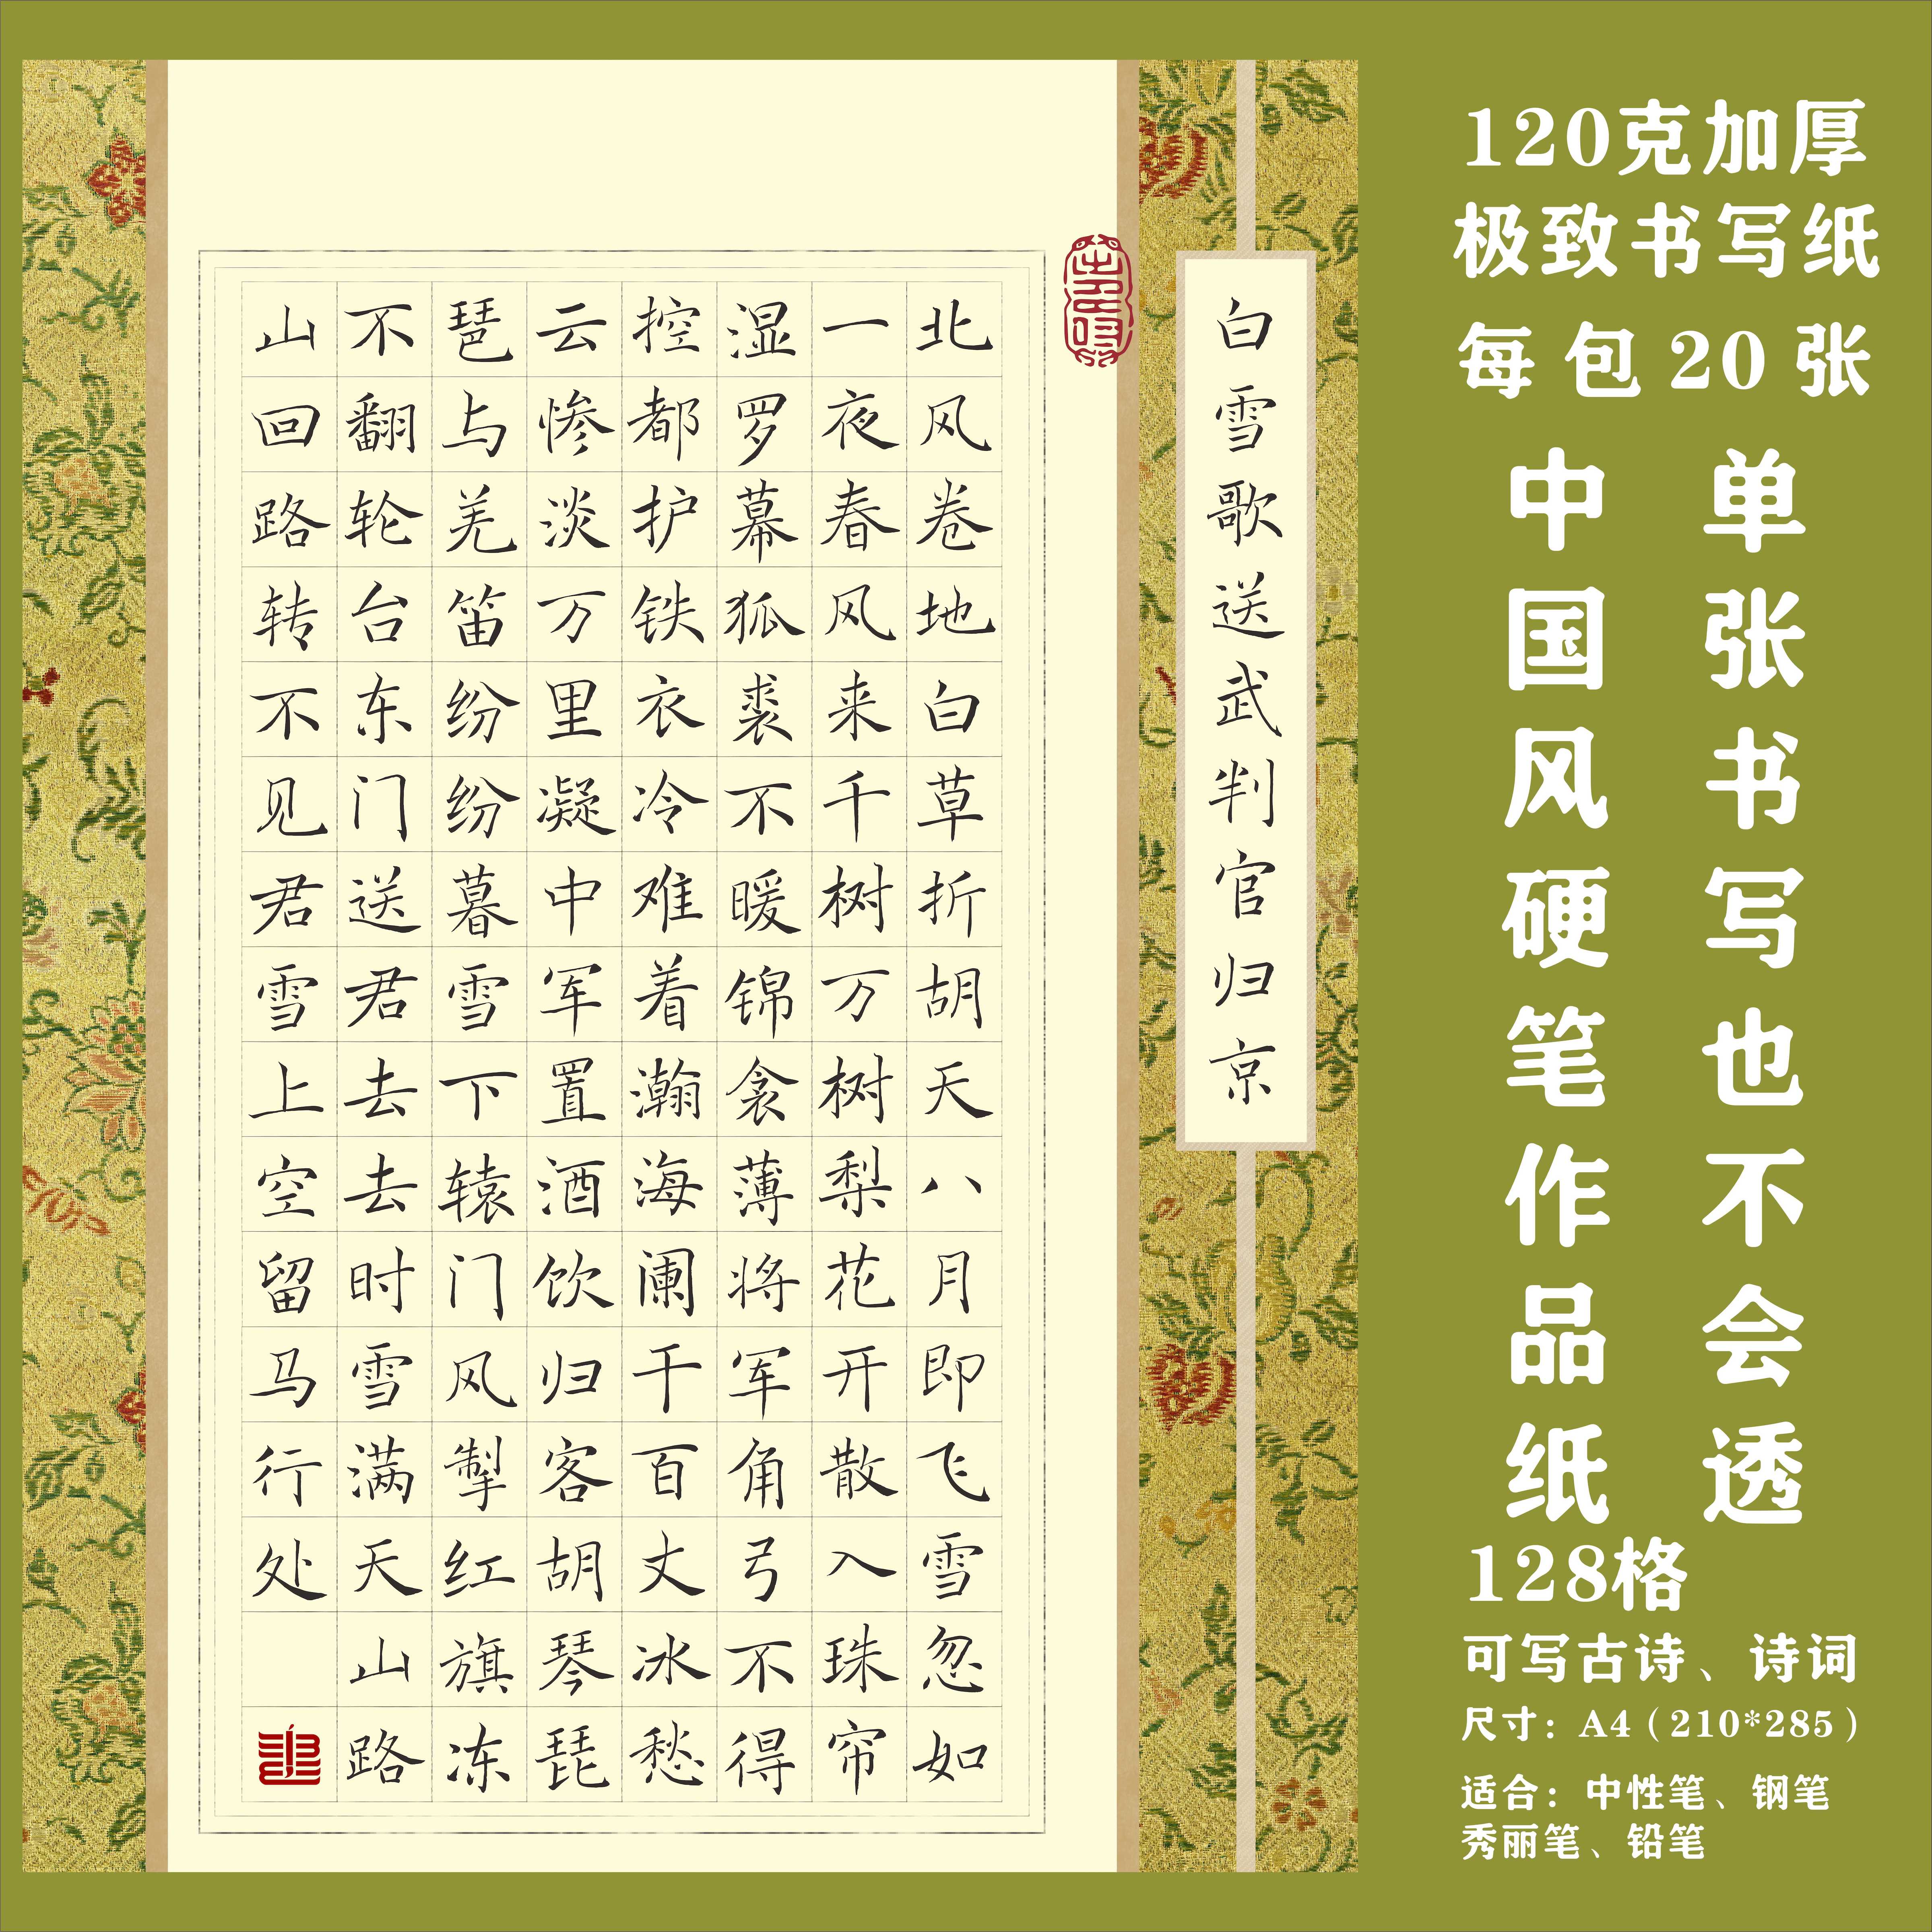 白雪歌送武判官归京
北风卷地白草折胡天八月即飞雪忽如
一夜春风来千树万树梨花开散入珠帘
湿罗幕狐裘不暖锦衾薄将军角弓不得
控都护铁衣冷难着瀚海阑干百丈冰愁
云惨淡万里凝中军置酒饮归客胡琴琵
琶与羌笛纷纷暮雪下辕门风掣红旗冻
不翻轮台东门送君去去时雪满天山路
山回路转不见君雪上空留马行处
120克加厚
极致书写纸
每包20张
单张书写也不会透
中国风硬笔作品纸
128格
可写古诗、诗词
尺寸：A4（210*285）
适合：中性笔、钢笔
秀丽笔、铅笔